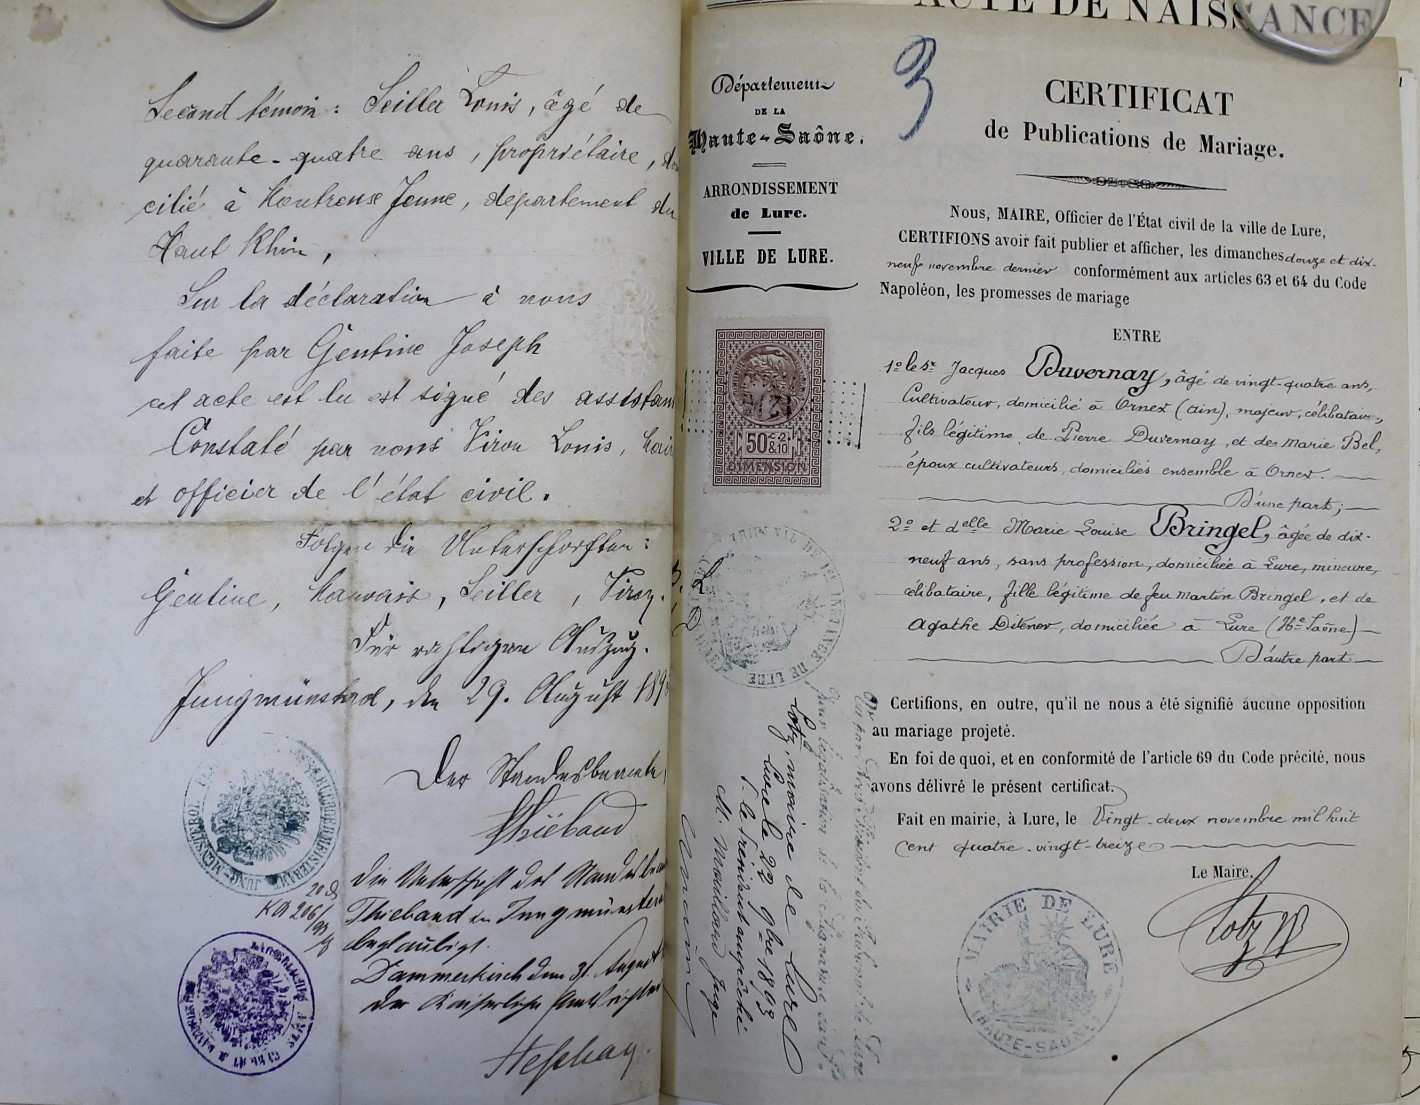 Second témoin : Seiller Louis, âgé de
quarante-quatre ans, propriétaire, do
cilié à Montreux Jeune, département du
Haut Rhin,
Sur la déclaration à nous
faite par Gentine Joseph
cet acte est lu est signé des assistan
Constaté par nous Viron Louis, Mair
et officier de l'état civil.
Folgen die Unterschriften :
Gentine, Mauvais, Seiller, Viron.
Für richtigen Auszug.
Jungmünsterol, den 29. August 189
Der Standesbeamte,
Thiébaud
Die Unterschrift des Standesbea
Thiebaud in Jungmünsterol
beglaubigt.
Dammerkirch den 31. August
Der Kaiserliche Amtsrichter
ACTE DE NAISSANCE
3
Département
DE LA
Haute-Saône.
ARRONDISSEMENT
de Lure.
VILLE DE LURE.
50c & 2/10
DIMENSION
CERTIFICAT
de Publications de Mariage.
Nous, MAIRE, Officier de l'État civil de la ville de Lure,
CERTIFIONS avoir fait publier et afficher, les dimanches douze et dix-
neuf novembre dernier conformément aux articles 63 et 64 du Code
Napoléon, les promesses de mariage
ENTRE
1º le Sr Jacques Duvernay, âgé de vingt-quatre ans,
Cultivateur, domicilié à Ornex (Ain), majeur, célibataire,
fils légitime de Pierre Duvernay, et de Marie Bel,
époux cultivateurs, domiciliés ensemble à Ornex.
D'une part ;
2º et delle Marie Louise Bringel, âgée de dix-
neuf ans, sans profession, domiciliée à Lure, mineure,
célibataire, fille légitime de feu Martin Bringel, et de
Agathe Ditner, domiciliée à Lure (Hte Saône)
D'autre part
Certifions, en outre, qu'il ne nous a été signifié aucune opposition
au mariage projeté.
En foi de quoi, et en conformité de l'article 69 du Code précité, nous
avons délivré le présent certificat.
Fait en mairie, à Lure, le Vingt-deux novembre mil huit
cent quatre-vingt-treize
Le Maire,
Lotz
MAIRIE DE LURE
(HAUTE-SAÔNE)
TRIBUNAL DE 1re INSTANCE DE LURE
Vu par Nous Président du Tribunal de Lure
pour légalisation de la signature de Mr
Lotz, maire de Lure
Lure le 22 9bre 1893
P. le Président empêché
M. Maillard Juge